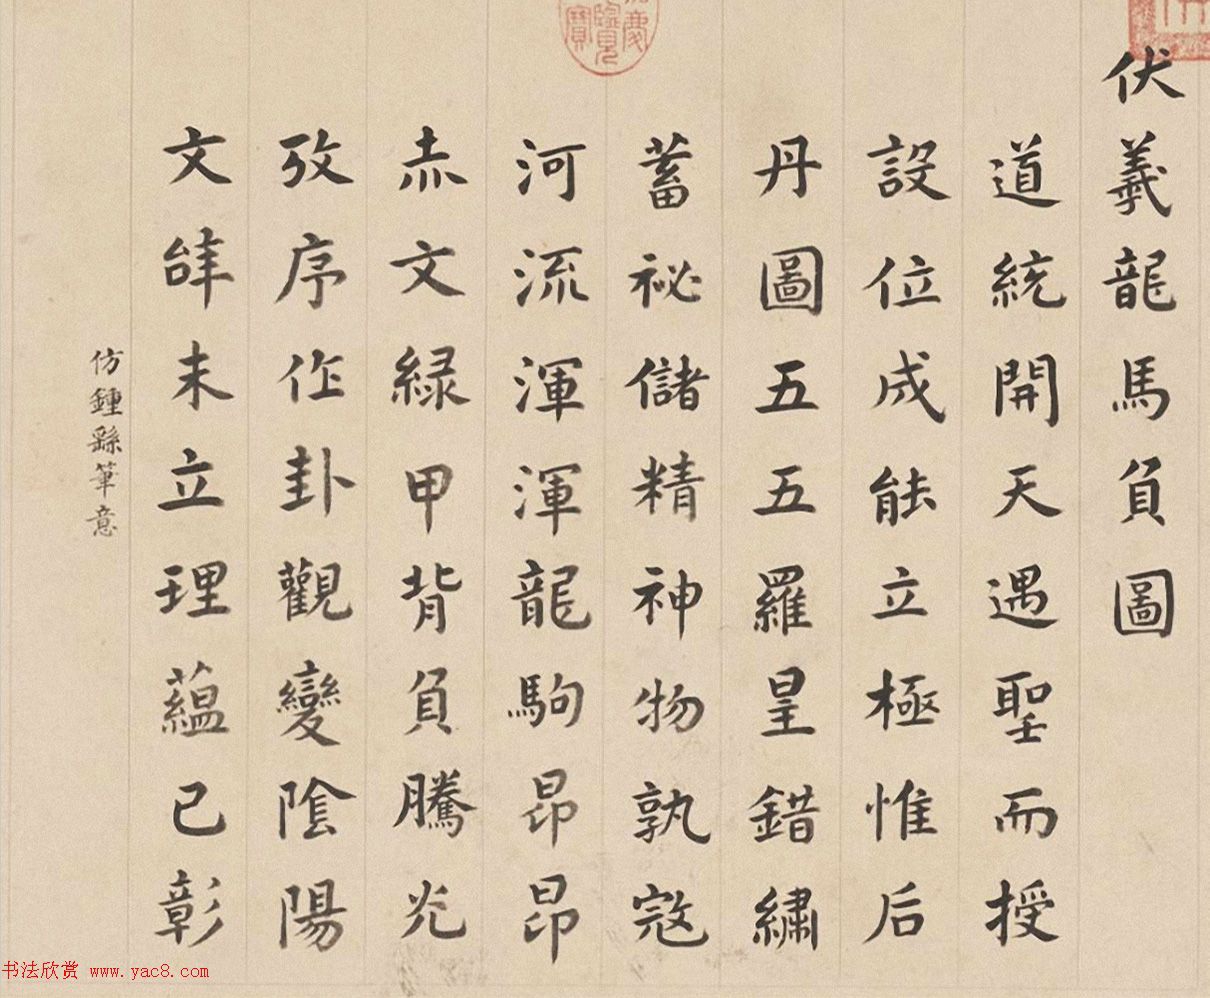 伏羲龍馬負圖
道統開天遇聖而授
設位成能立極惟后
丹圖五五羅星錯繡
蓄祕儲精神物孰寇
河流渾渾龍駒昂昂
赤文緑甲背負騰光
攷序作卦觀變陰陽
文辝未立理藴已彰
仿鍾繇筆意
慶覽寶
书法欣赏 www.yac8.com